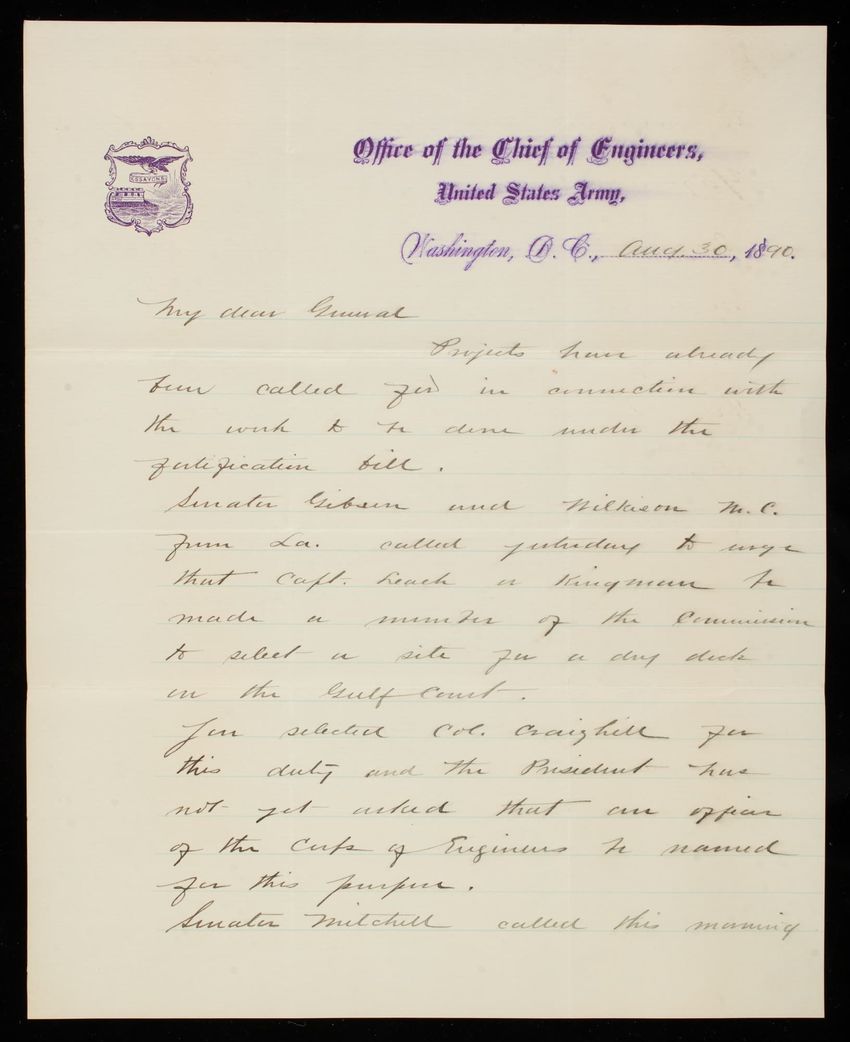 ESSAYONS
Office of the Chief of Engineers,
United States Army,
Washington, D. C., Aug. 30, 1890.
My dear General
Projects have already
been called for in connection with
the work to be done under the
fortification bill.
Senator Gibson and Wilkison M.C.
from La. called yesterday to urge
that Capt. Leach or Kingman be
made a member of the Commission
to select a site for a dry dock
on the Gulf Coast.
You selected Col. Craighill for
this duty and the President has
not yet asked that an officer
of the Corps of Engineers be named
for this purpose.
Senator Mitchell called this morning